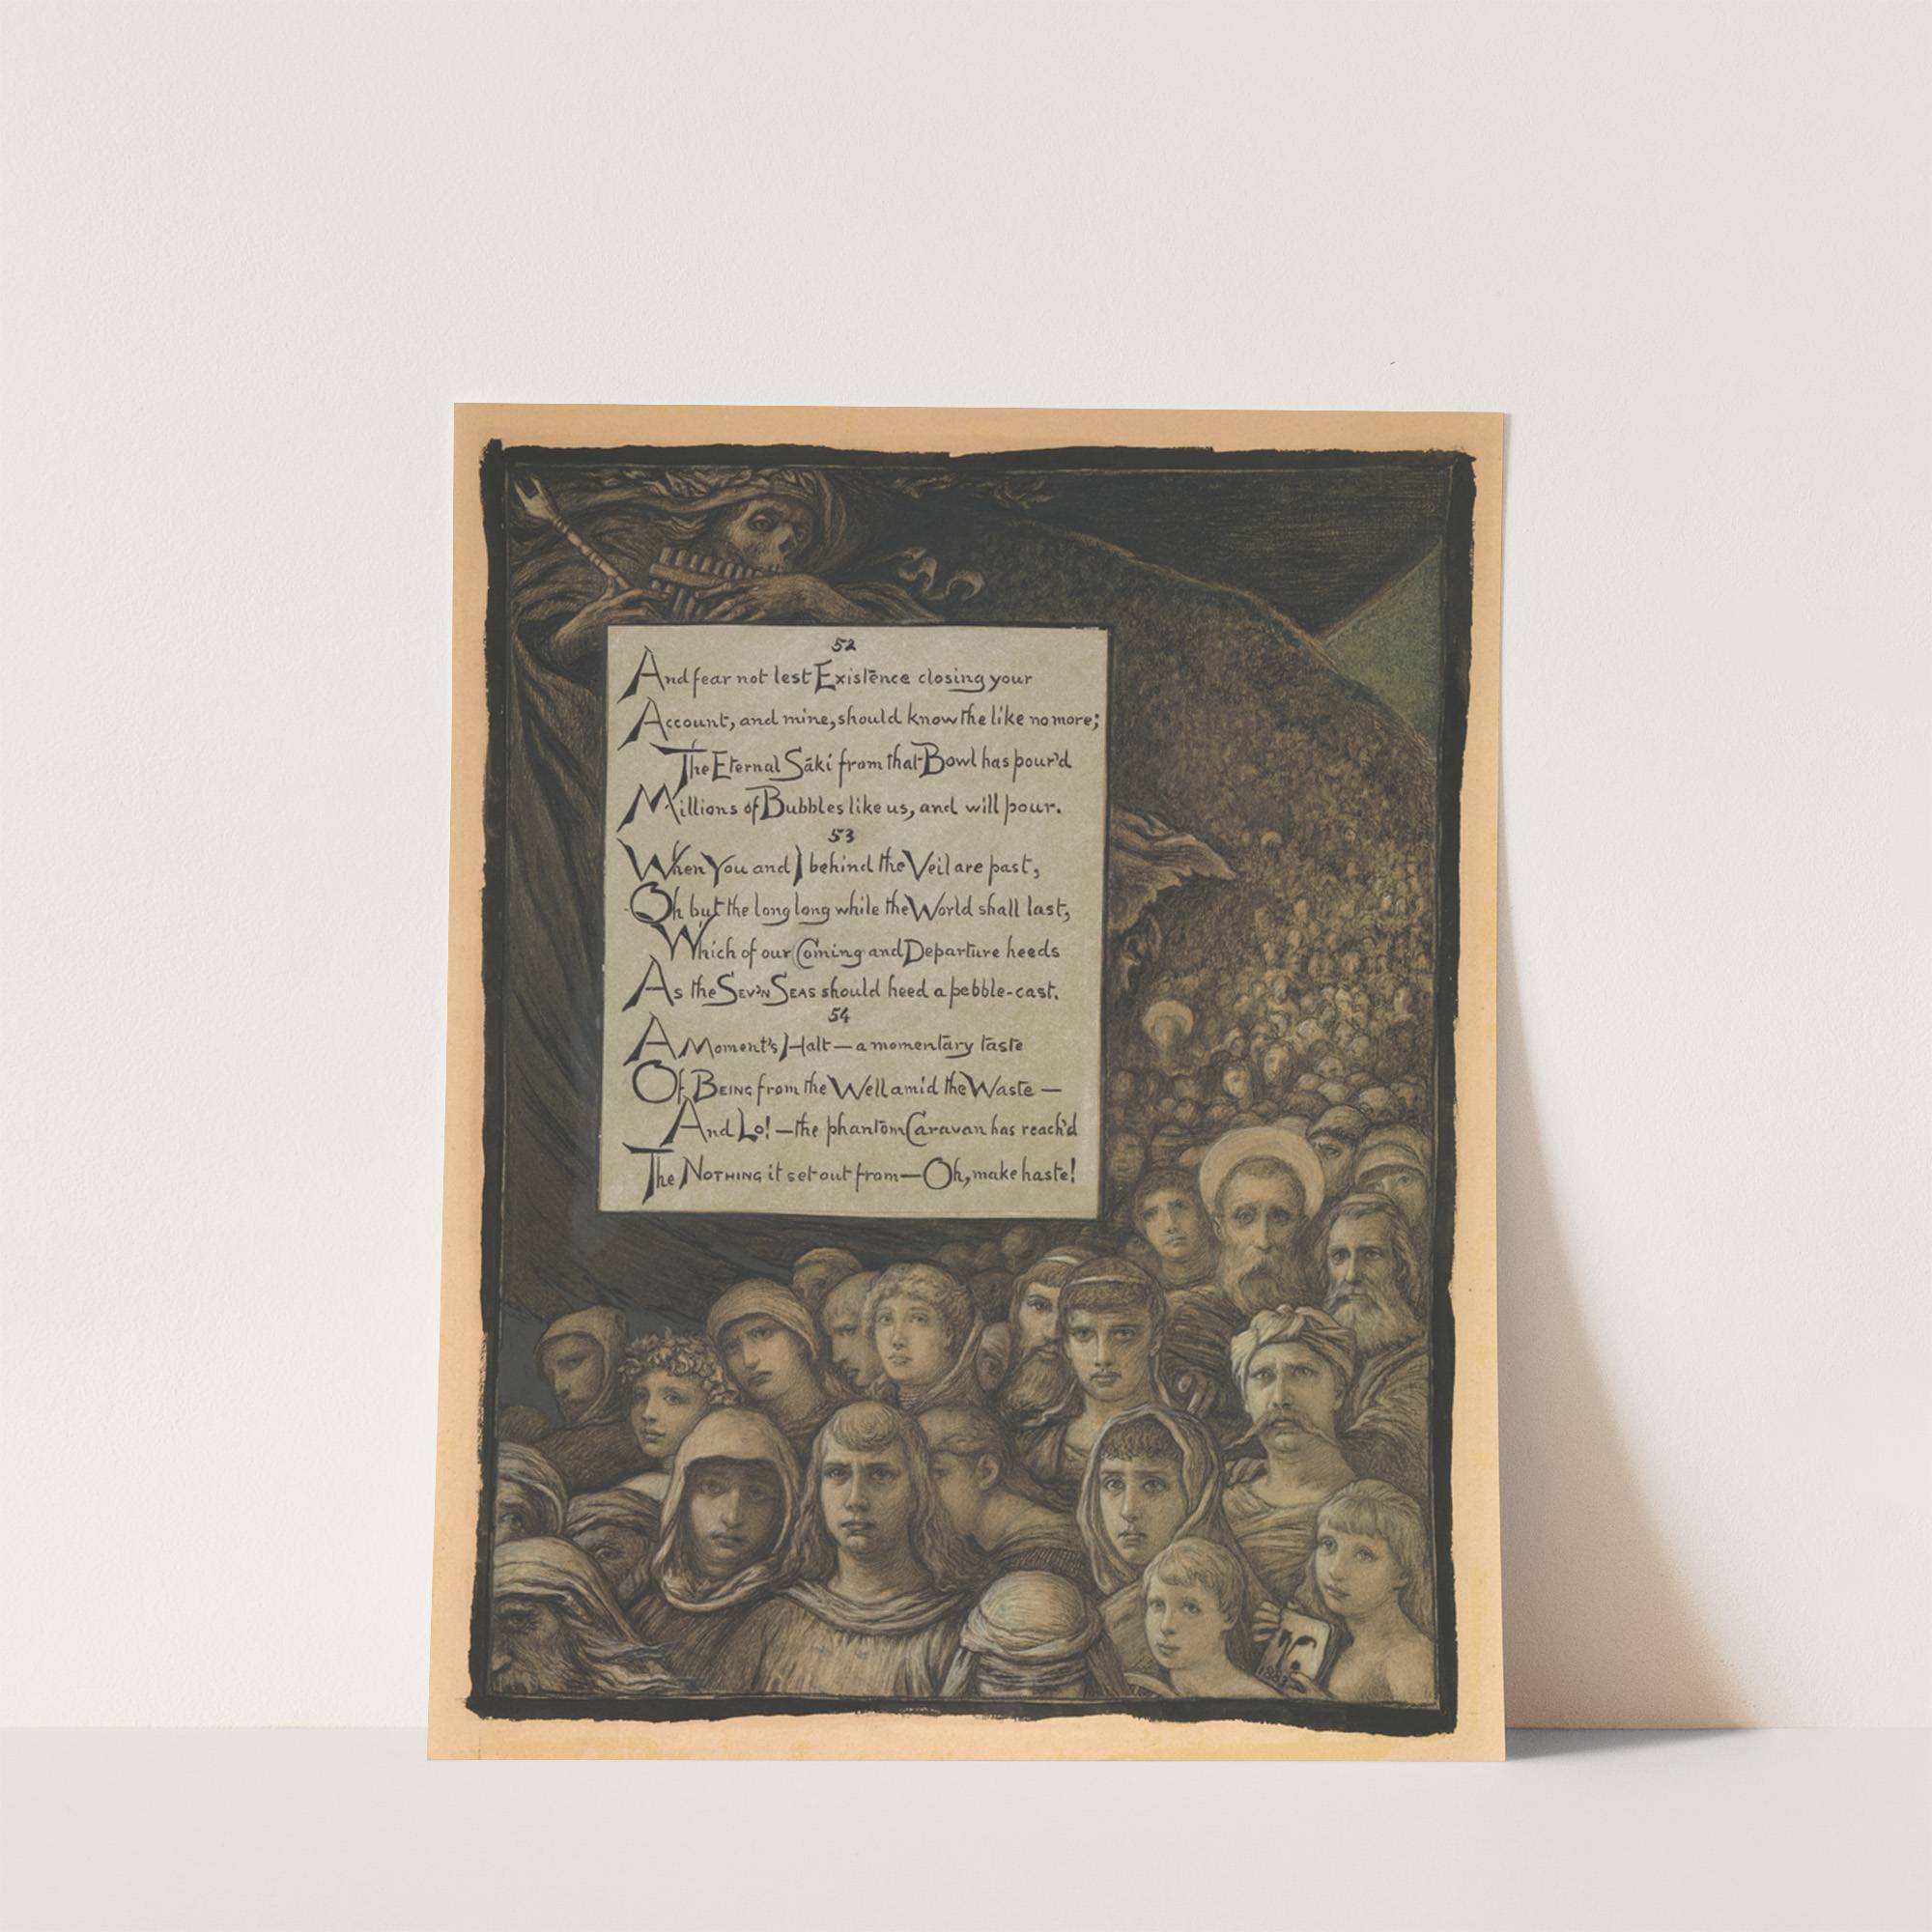 52
And fear not lest Existence closing your
Account, and mine, should know the like no more;
The Eternal Sāki from that Bowl has pour'd
Millions of Bubbles like us, and will pour.
53
When You and I behind the Veil are past,
Oh but the long long while the World shall last,
Which of our Coming and Departure heeds
As the SEV'N SEAS should heed a pebble-cast.
54
A Moment's Halt—a momentary taste
Of BEING from the Well amid the Waste—
And Lo!—the phantom Caravan has reach'd
The NOTHING it set out from—Oh, make haste!